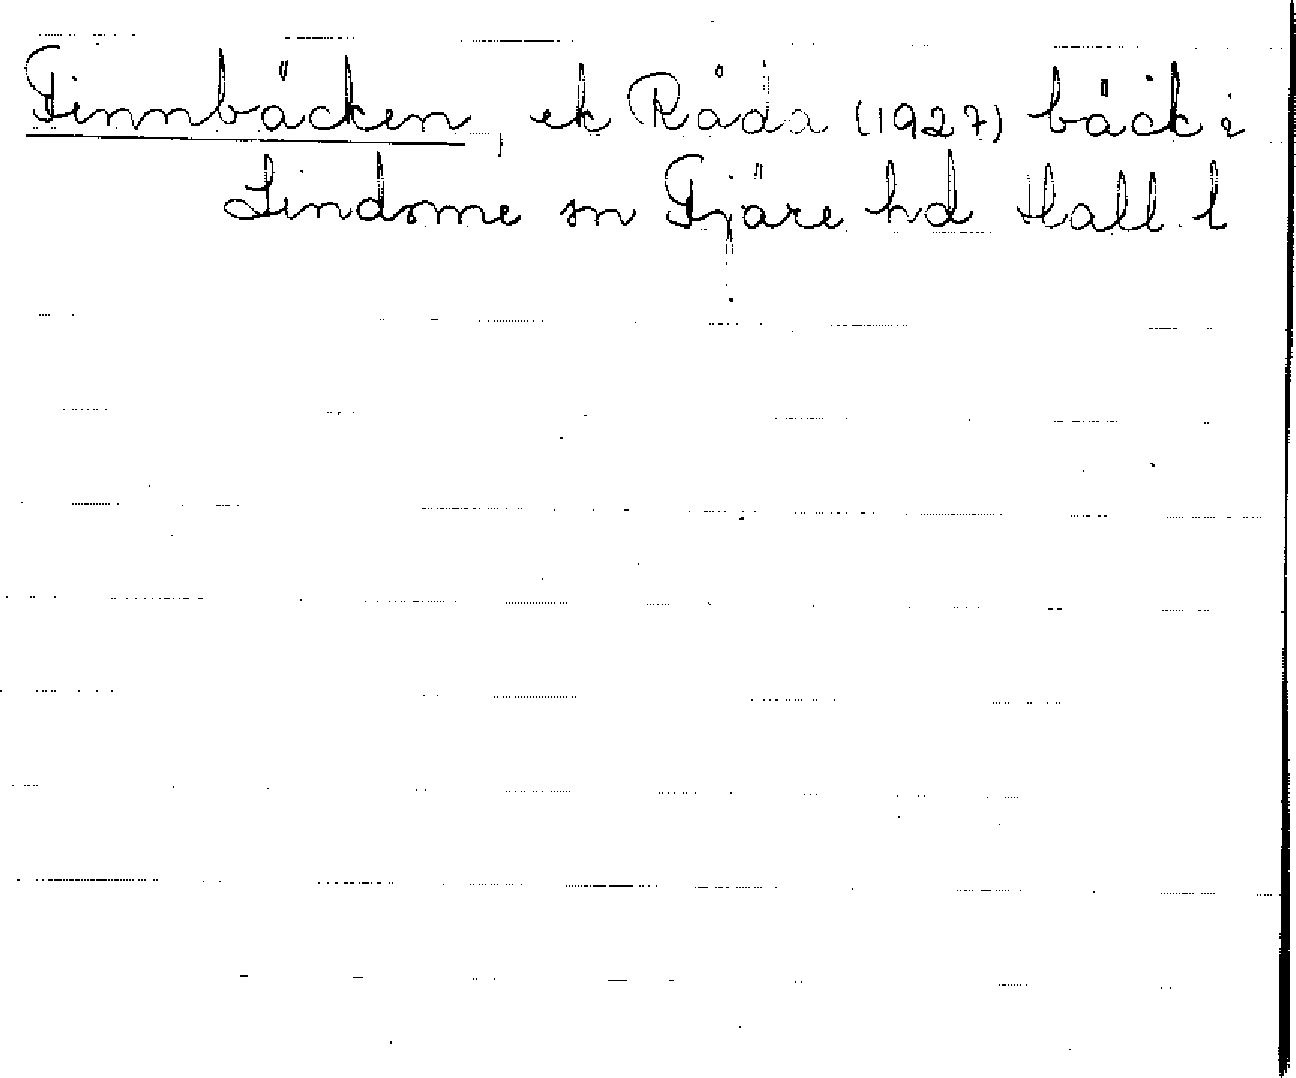 Finnbäcken, ek Råda (1927) bäck i
Lindome sn Fjäre hd Hall. l